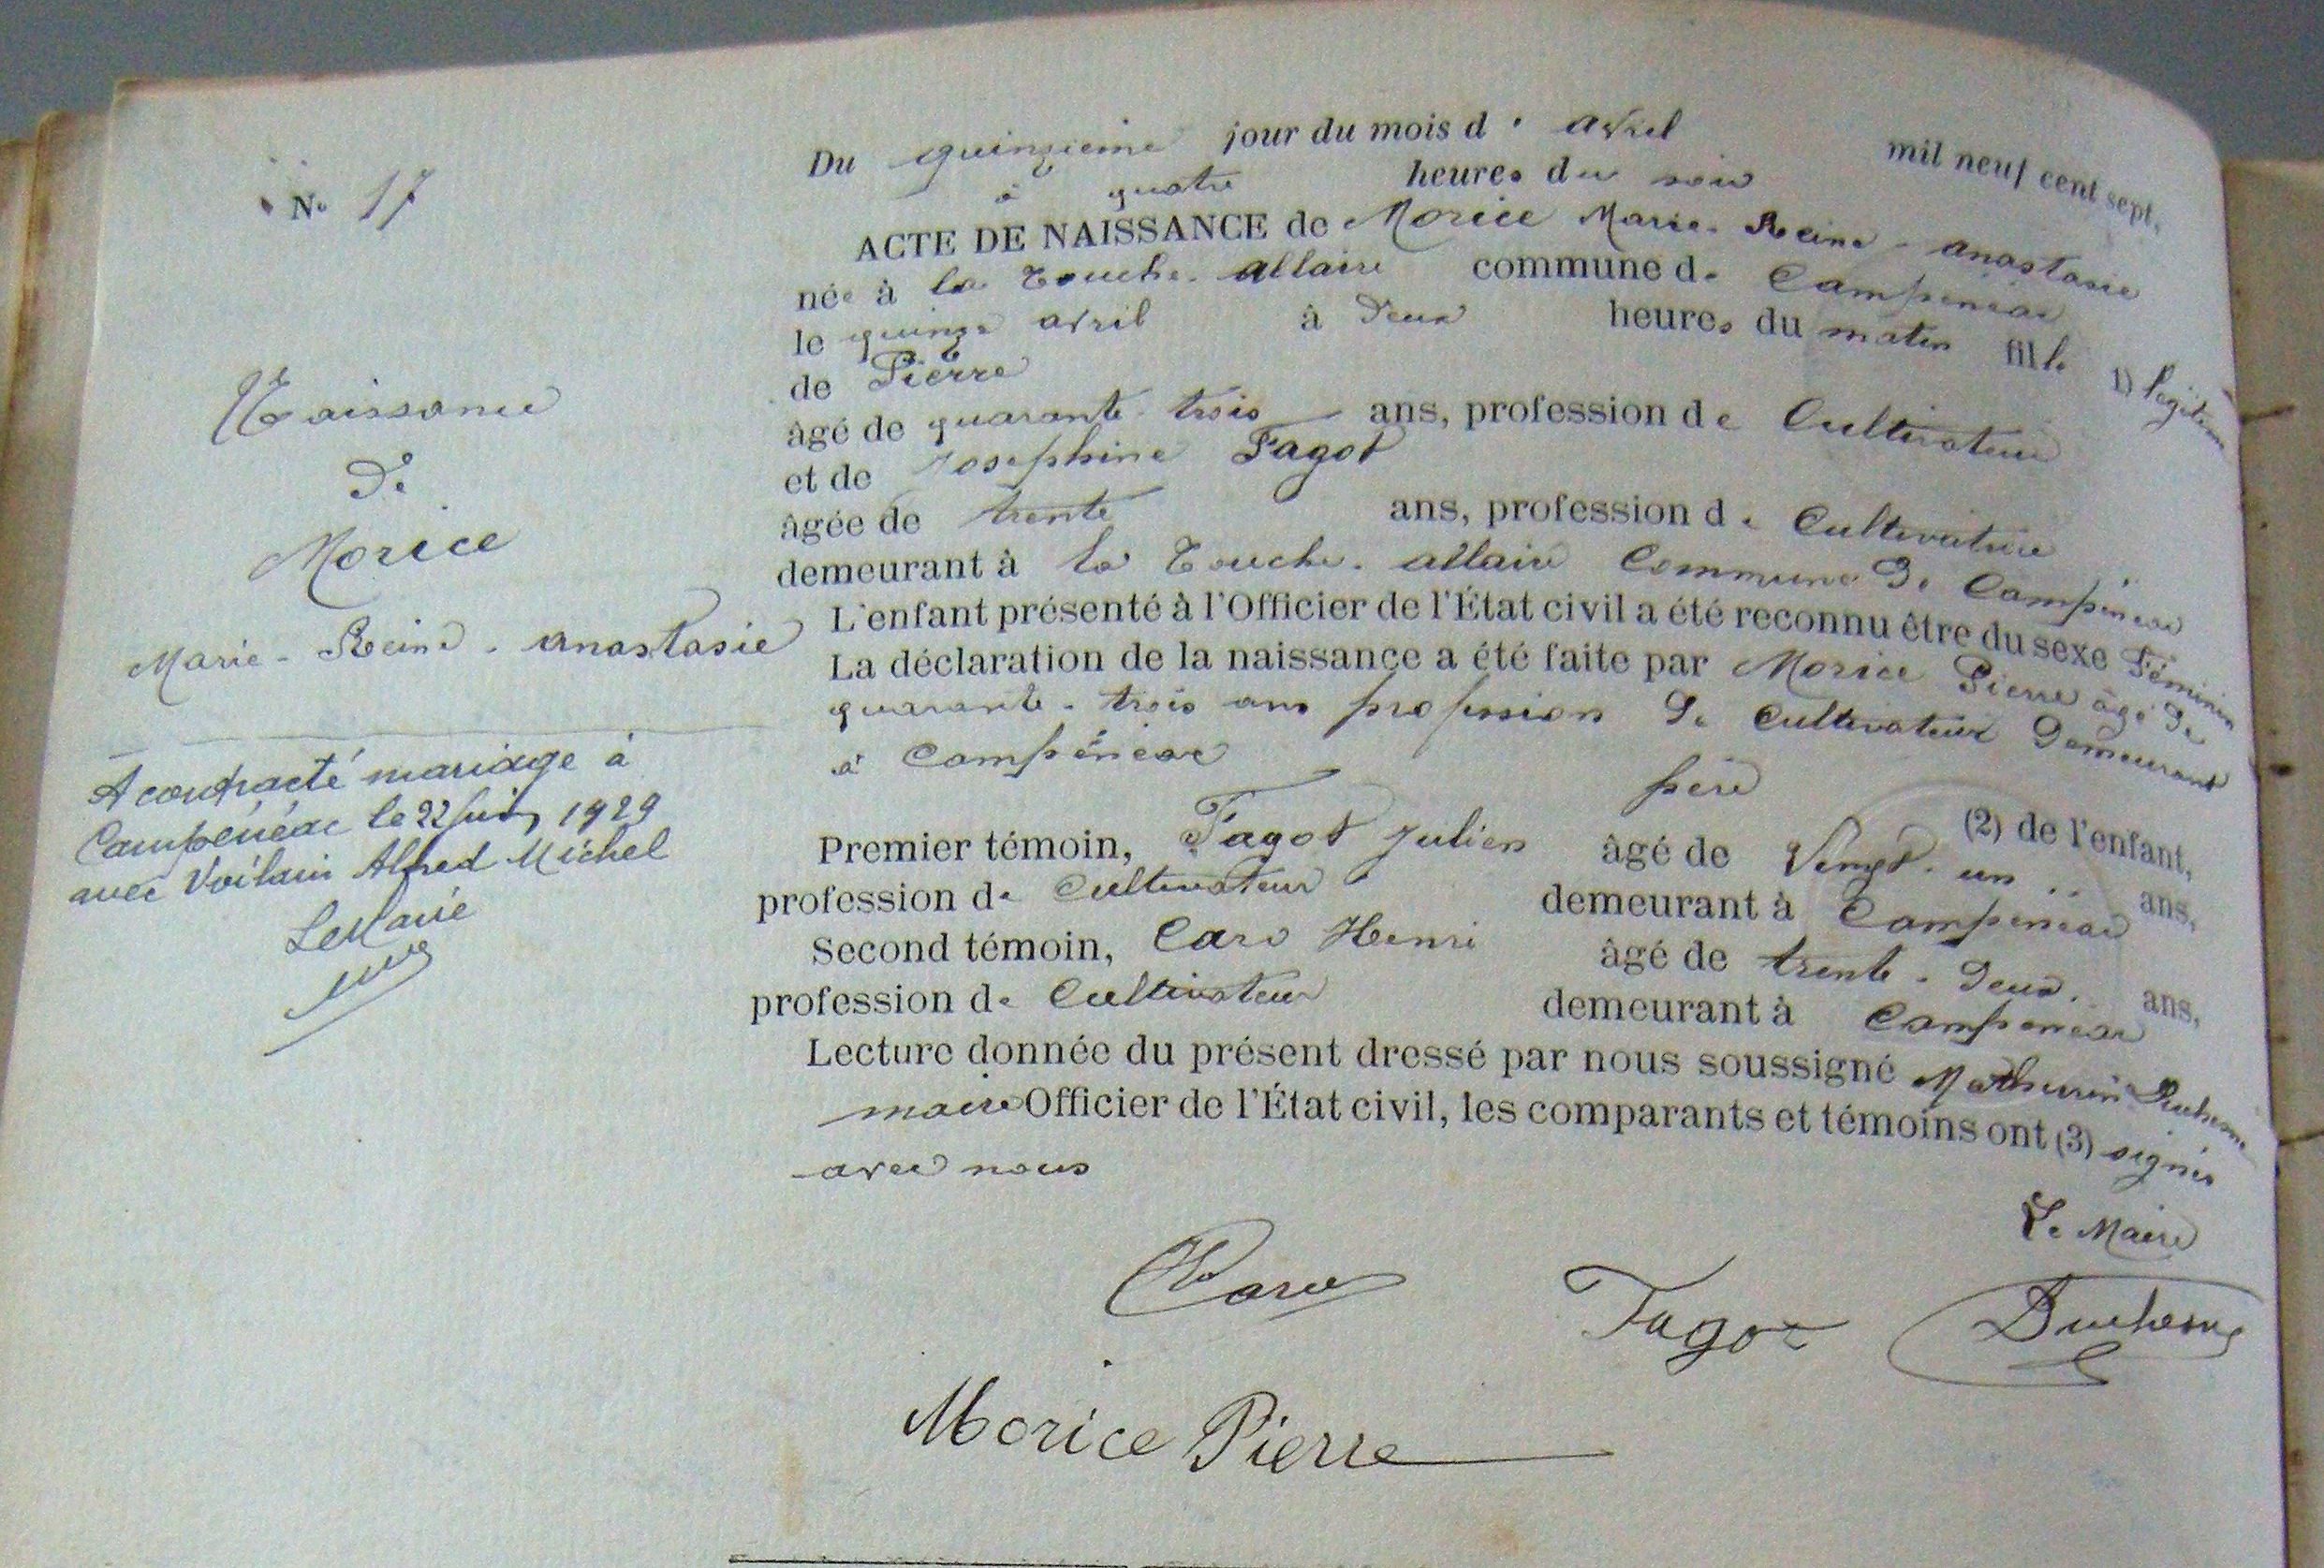 N° 17
Naissance
de
Morice
Marie-Reine-anastasie
A contracté mariage à
Campénéac le 22 Juin 1929
avec Voilain Alfred Michel
Le Maire
Du quinzième jour du mois d' avril mil neuf cent sept,
à quatre heures du soir
ACTE DE NAISSANCE de Morice Marie-Reine-anastasie
née à la Touche-allaire commune de Campénéac
le quinze avril à deux heures du matin fille 1) légitime
de Pierre
âgé de quarante-trois ans, profession de Cultivateur
et de Josephine Fagot
âgée de trente ans, profession de Cultivatrice
demeurant à la Touche-allaire Commune de Campénéac
L'enfant présenté à l'Officier de l'État civil a été reconnu être du sexe Féminin
La déclaration de la naissance a été faite par Morice Pierre âgé de
quarante-trois ans profession de cultivateur demeurant
à Campénéac père (2) de l'enfant,
Premier témoin, Fagot Julien âgé de Vingt-un ans,
profession de Cultivateur demeurant à Campénéac
Second témoin, Caro Henri âgé de trente-deux ans,
profession de Cultivateur demeurant à Campénéac
Lecture donnée du présent dressé par nous soussigné Mathurin Duchesne
maire Officier de l'État civil, les comparants et témoins ont (3) signés
avec nous
Le Maire
Caro
Fagot
Duchesne
Morice Pierre